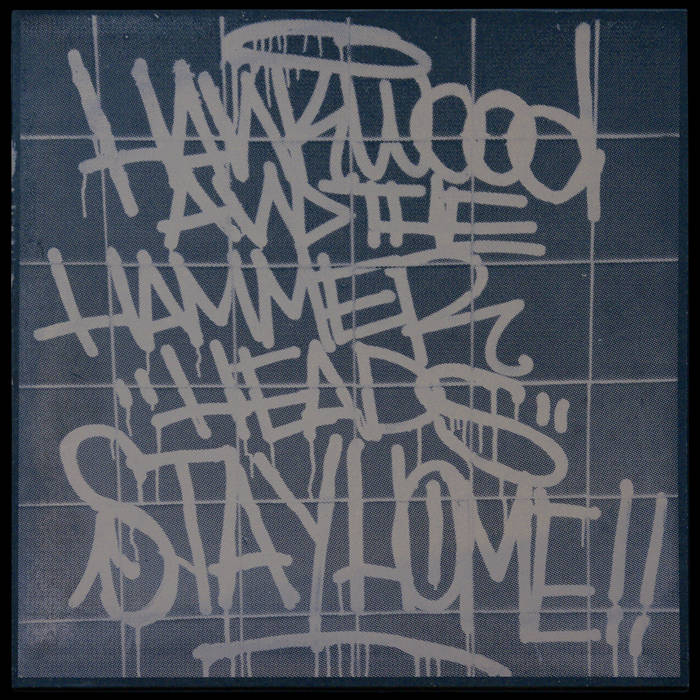 HANK WOOD
AND THE
HAMMER
"HEADS"
STAY HOME!!